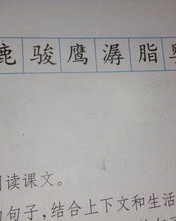 鹿 骏 鹰 潺 脂
读课文。
句子，结合上下文和生活